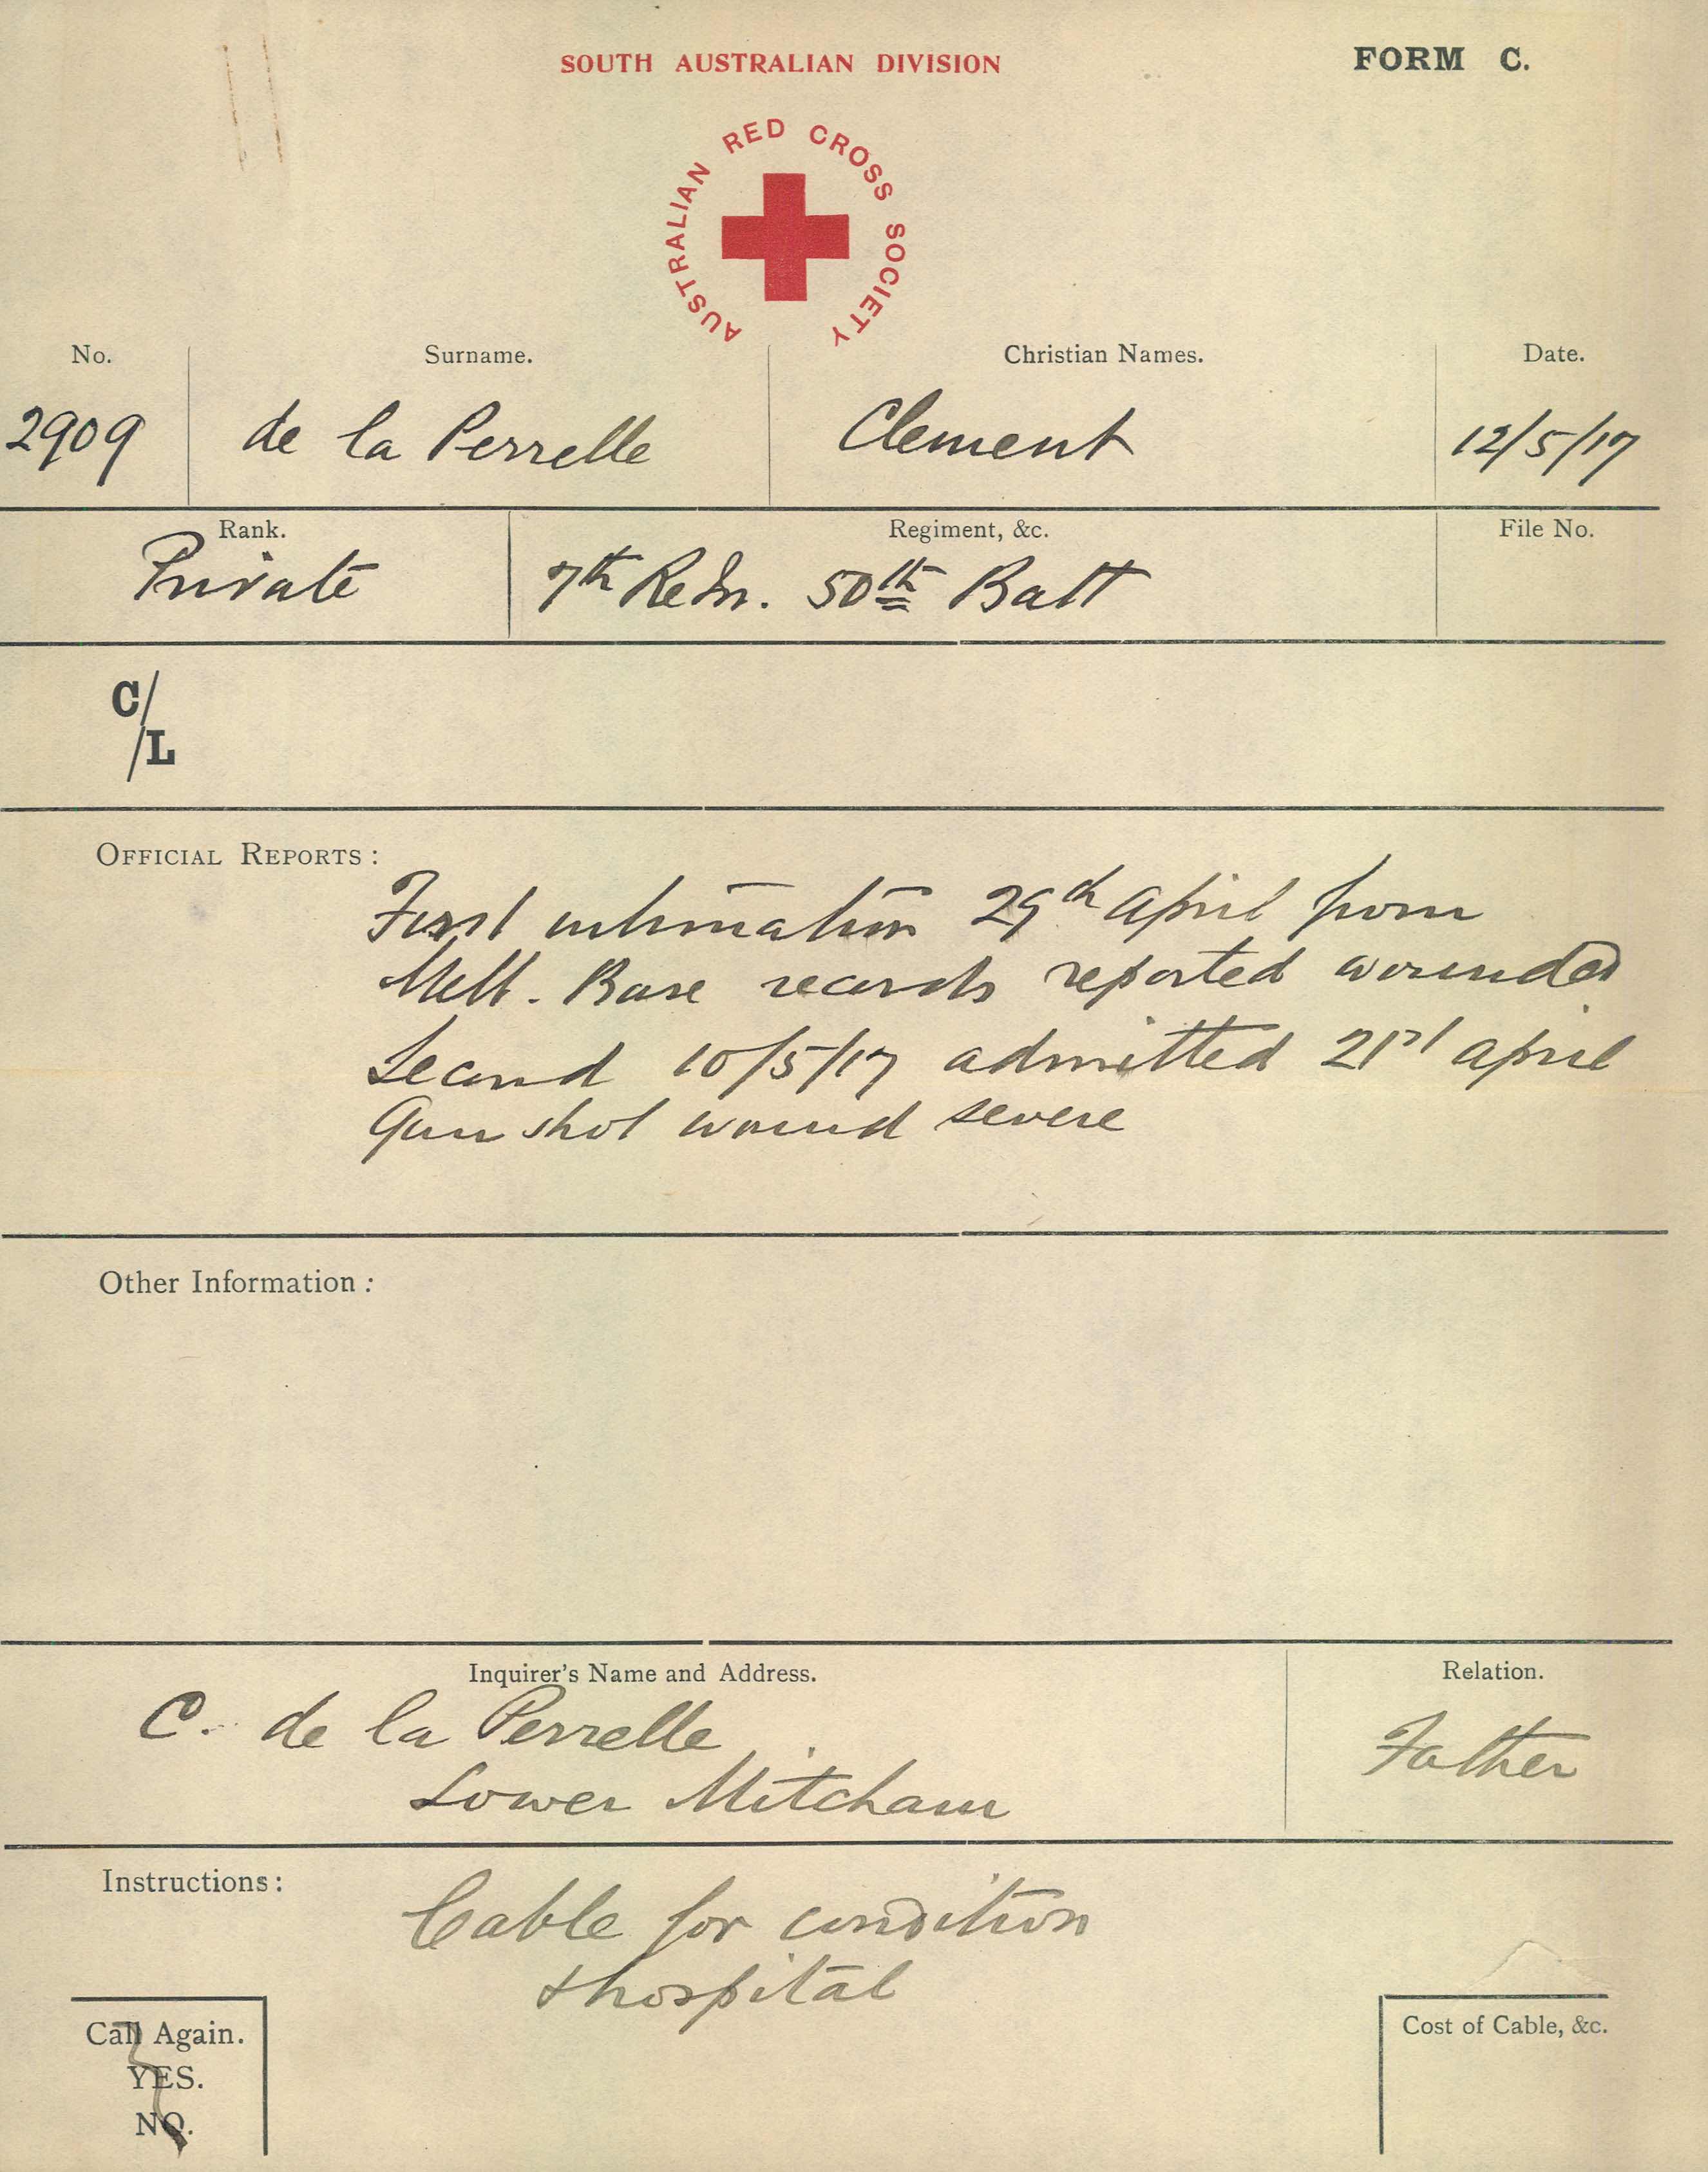 SOUTH AUSTRALIAN DIVISION
FORM C.
AUSTRALIAN RED CROSS SOCIETY
No.
Surname.
Christian Names.
Date.
2909
de la Perrelle
Clement
12/5/17
Rank.
Regiment, &c.
File No.
Private
7th Rein. 50th Batt
C/L
OFFICIAL REPORTS:
First intimation 29th April from
Melb. Base records reported wounded
Second 10/5/17 admitted 21st April
Gun shot wound severe
Other Information:
Inquirer's Name and Address.
Relation.
C. de la Perrelle
Lower Mitcham
Father
Instructions:
Cable for condition
& hospital
Call Again.
YES.
NO.
Cost of Cable, &c.